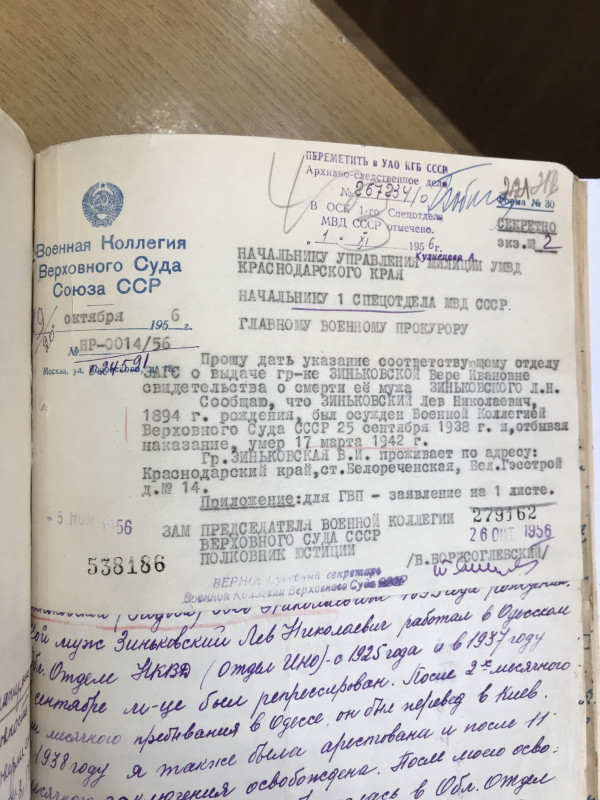 ПЕРЕМЕТИТЬ в УАО КГБ СССР
Архивно-следственное дело
№ 267234/10
В ОСК 1-го Спецотдела
МВД СССР отмечено.
"1" XI 1956 г.
Кузнецова Л.
221 218
Форма № 30
СЕКРЕТНО
экз.№ 2
Военная Коллегия
Верховного Суда
Союза ССР
октября 1956 г.
№ НР-0014/56
Москва, ул.
НАЧАЛЬНИКУ УПРАВЛЕНИЯ МИЛИЦИИ УМВД
КРАСНОДАРСКОГО КРАЯ
НАЧАЛЬНИКУ 1 СПЕЦОТДЕЛА МВД СССР.
ГЛАВНОМУ ВОЕННОМУ ПРОКУРОРУ
Прошу дать указание соответствующему отделу
ЗАГС о выдаче гр-ке ЗИНЬКОВСКОЙ Вере Ивановне
свидетельства о смерти её мужа ЗИНЬКОВСКОГО Л.Н.
Сообщаю, что ЗИНЬКОВСКИЙ Лев Николаевич,
1894 г. рождения, был осужден Военной Коллегией
Верховного Суда СССР 25 сентября 1938 г. и, отбывая
наказание, умер 17 марта 1942 г.
Гр.ЗИНЬКОВСКАЯ В.И. проживает по адресу:
Краснодарский край,ст.Белореченская, Бел.Гэсстрой
д.№ 14.
Приложение:для ГВП - заявление на 1 листе.
- 5 НОЯ 1956
538186
ЗАМ ПРЕДСЕДАТЕЛЯ ВОЕННОЙ КОЛЛЕГИИ
ВЕРХОВНОГО СУДА СССР
ПОЛКОВНИК ЮСТИЦИИ
279162
26 ОКТ. 1956
/В.БОРИСОГЛЕБСКИЙ/
ВЕРНО: Судебный секретарь
Военной Коллегии Верховного Суда СССР
года рождения.
Мой муж Зиньковский Лев Николаевич работал в Одесском
Обл. Отделе НКВД (Отдел Ино) - с 1925 года и в 1937 году
сентябре м-це был репрессирован. После 2х месячного
месячного пребывания в Одессе, он был перевед в Киев.
1938 году я также была арестована и после 11
месячного заключения освобождена. После моего осво-
в Обл. Отдел